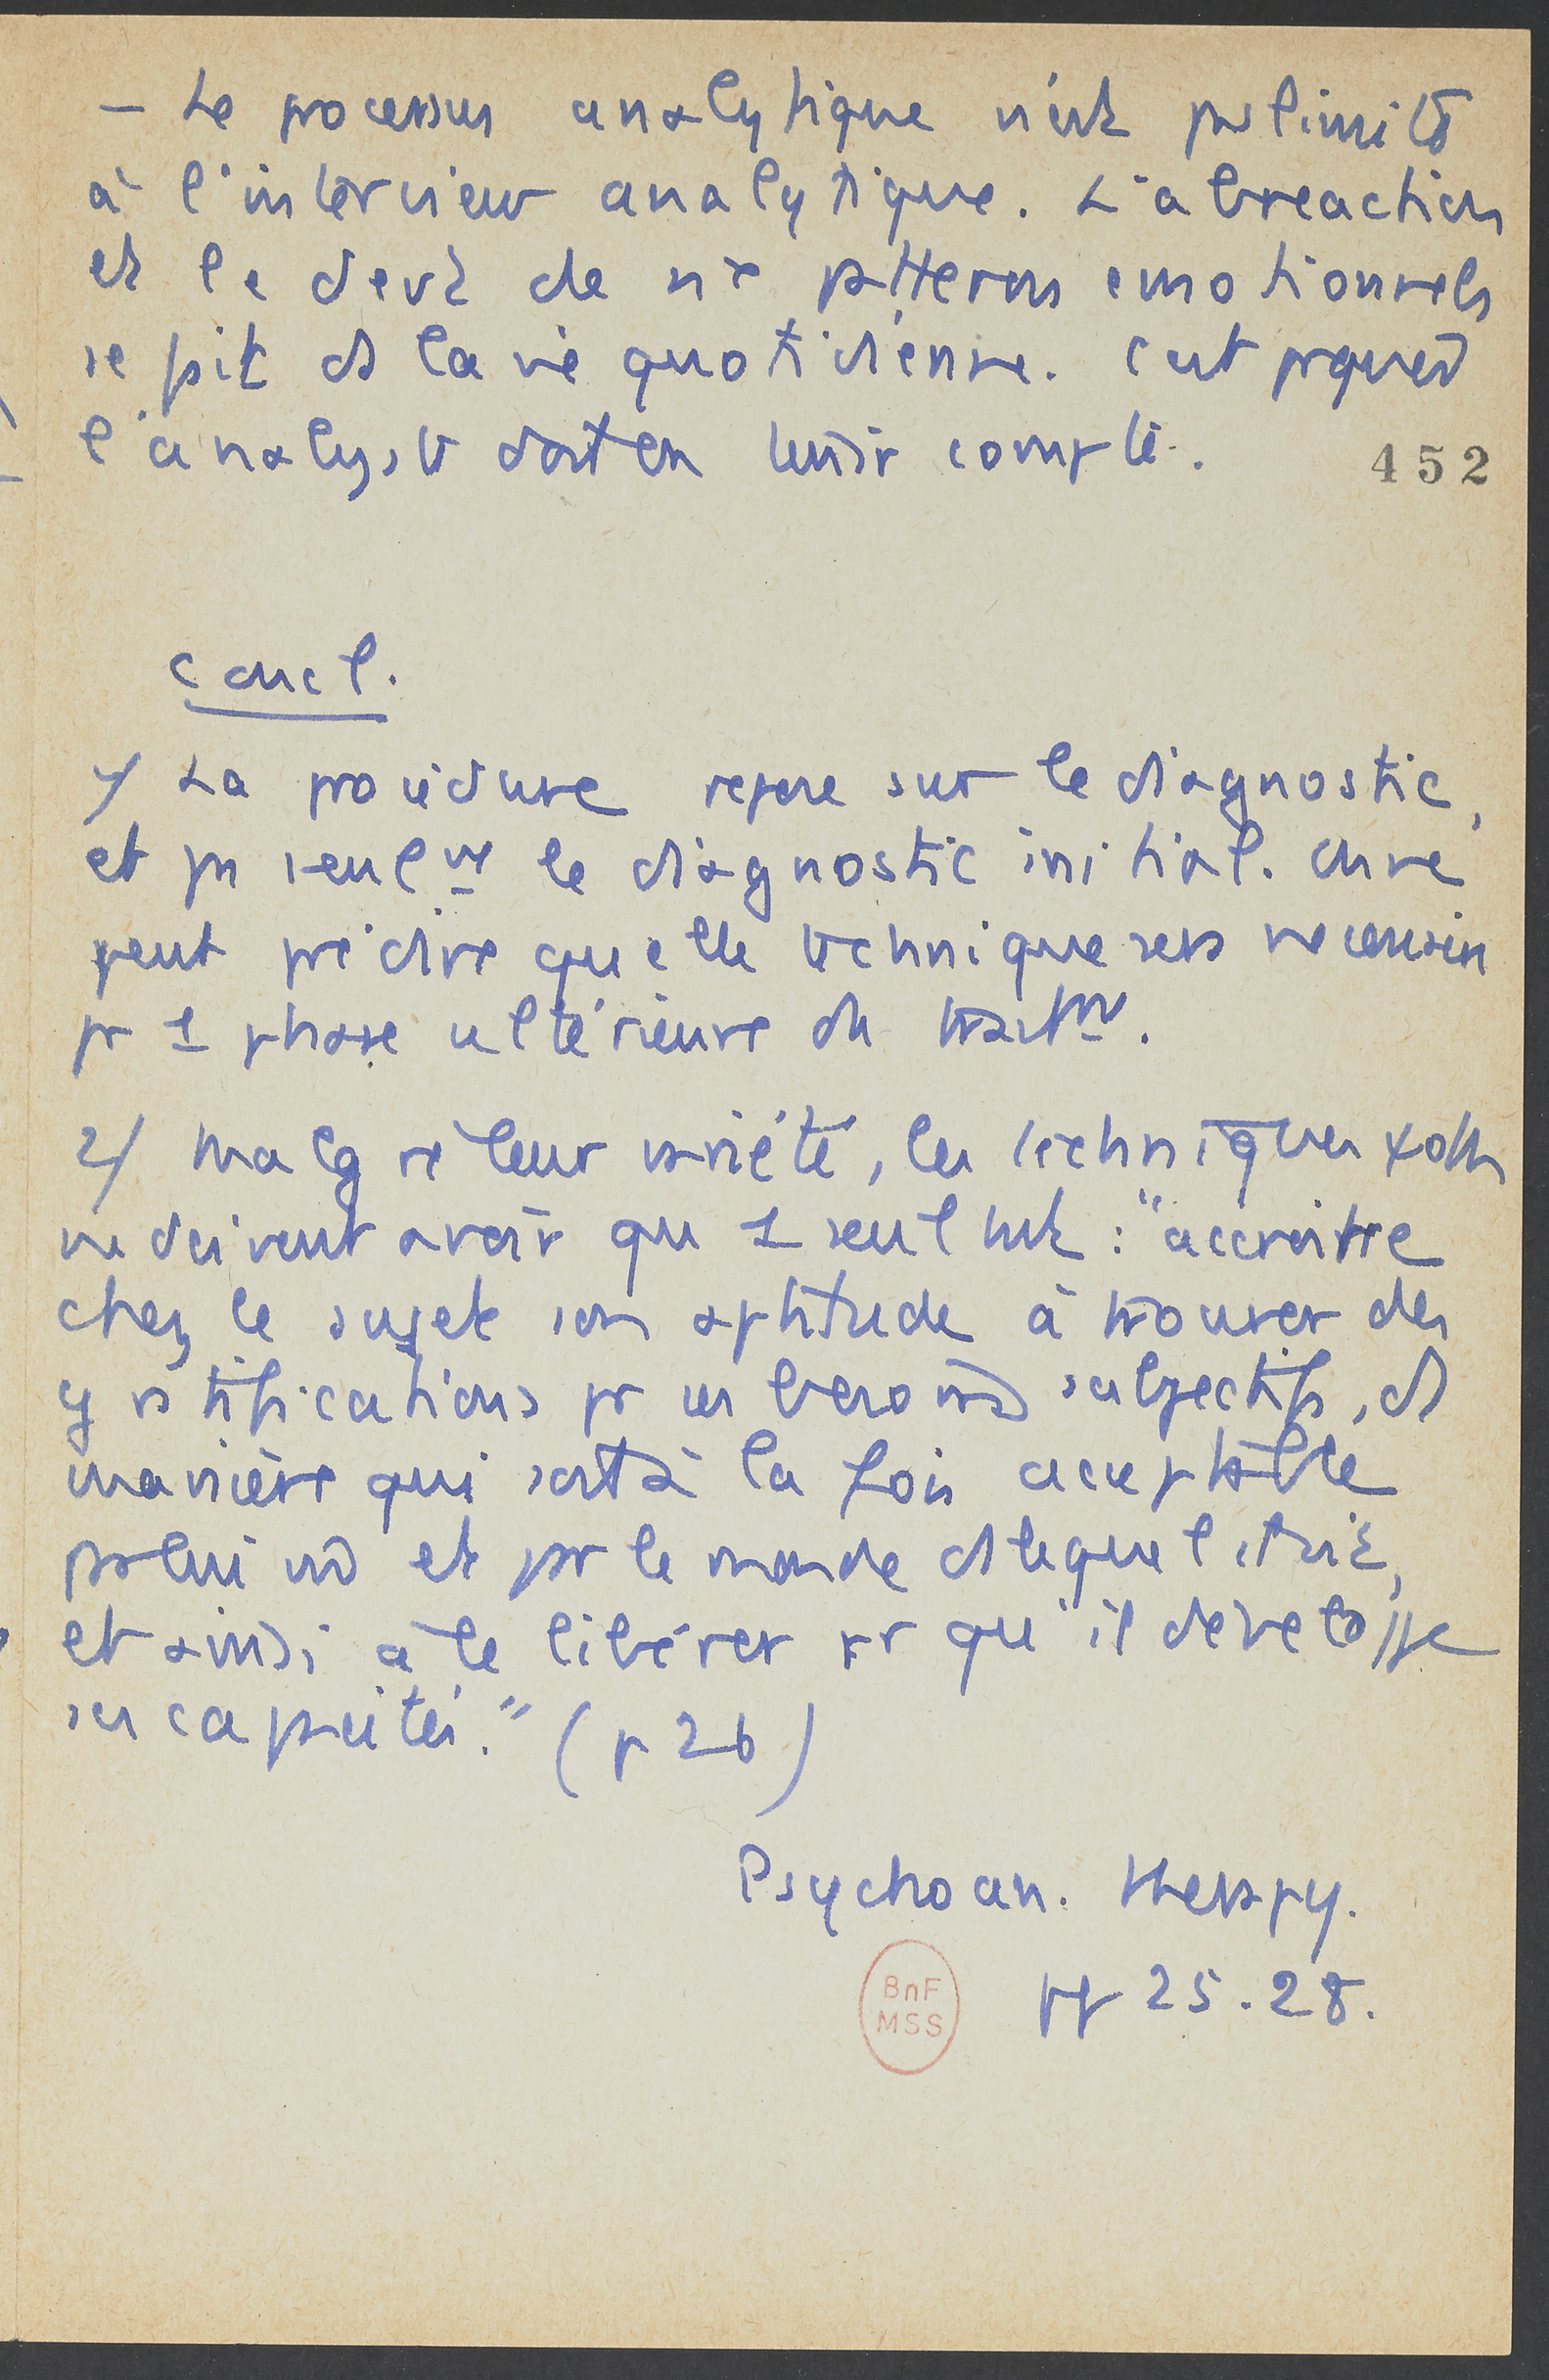 – Le processus analytique n'est pas limité
à l'interview analytique. L'abreaction
et le devt de nx patterns emotionnels
se fait ds la vie quotidienne. C'est pquoi
l'analyste doit en tenir compte.
452
Concl.
1/ La procédure repose sur le diagnostic,
et pas seulmt le diagnostic initial. On ne
peut prédire quelle technique sera necessaire
pr 1 phase ultérieure du traitmt.
2/ Malgré leur variété, les techniques
ne doivent avoir qu 1 seul but : "accroitre
chez le sujet son aptitude à trouver des
gratifications pr ses besoins subjectifs, ds
manière qui soit à la fois acceptable
par lui et par le monde ds lequel il vit,
et ainsi à le libérer pr qu'il développe
ses capacités." (p 26)
Psychoan. therapy.
BnF
MSS
pp 25.28.